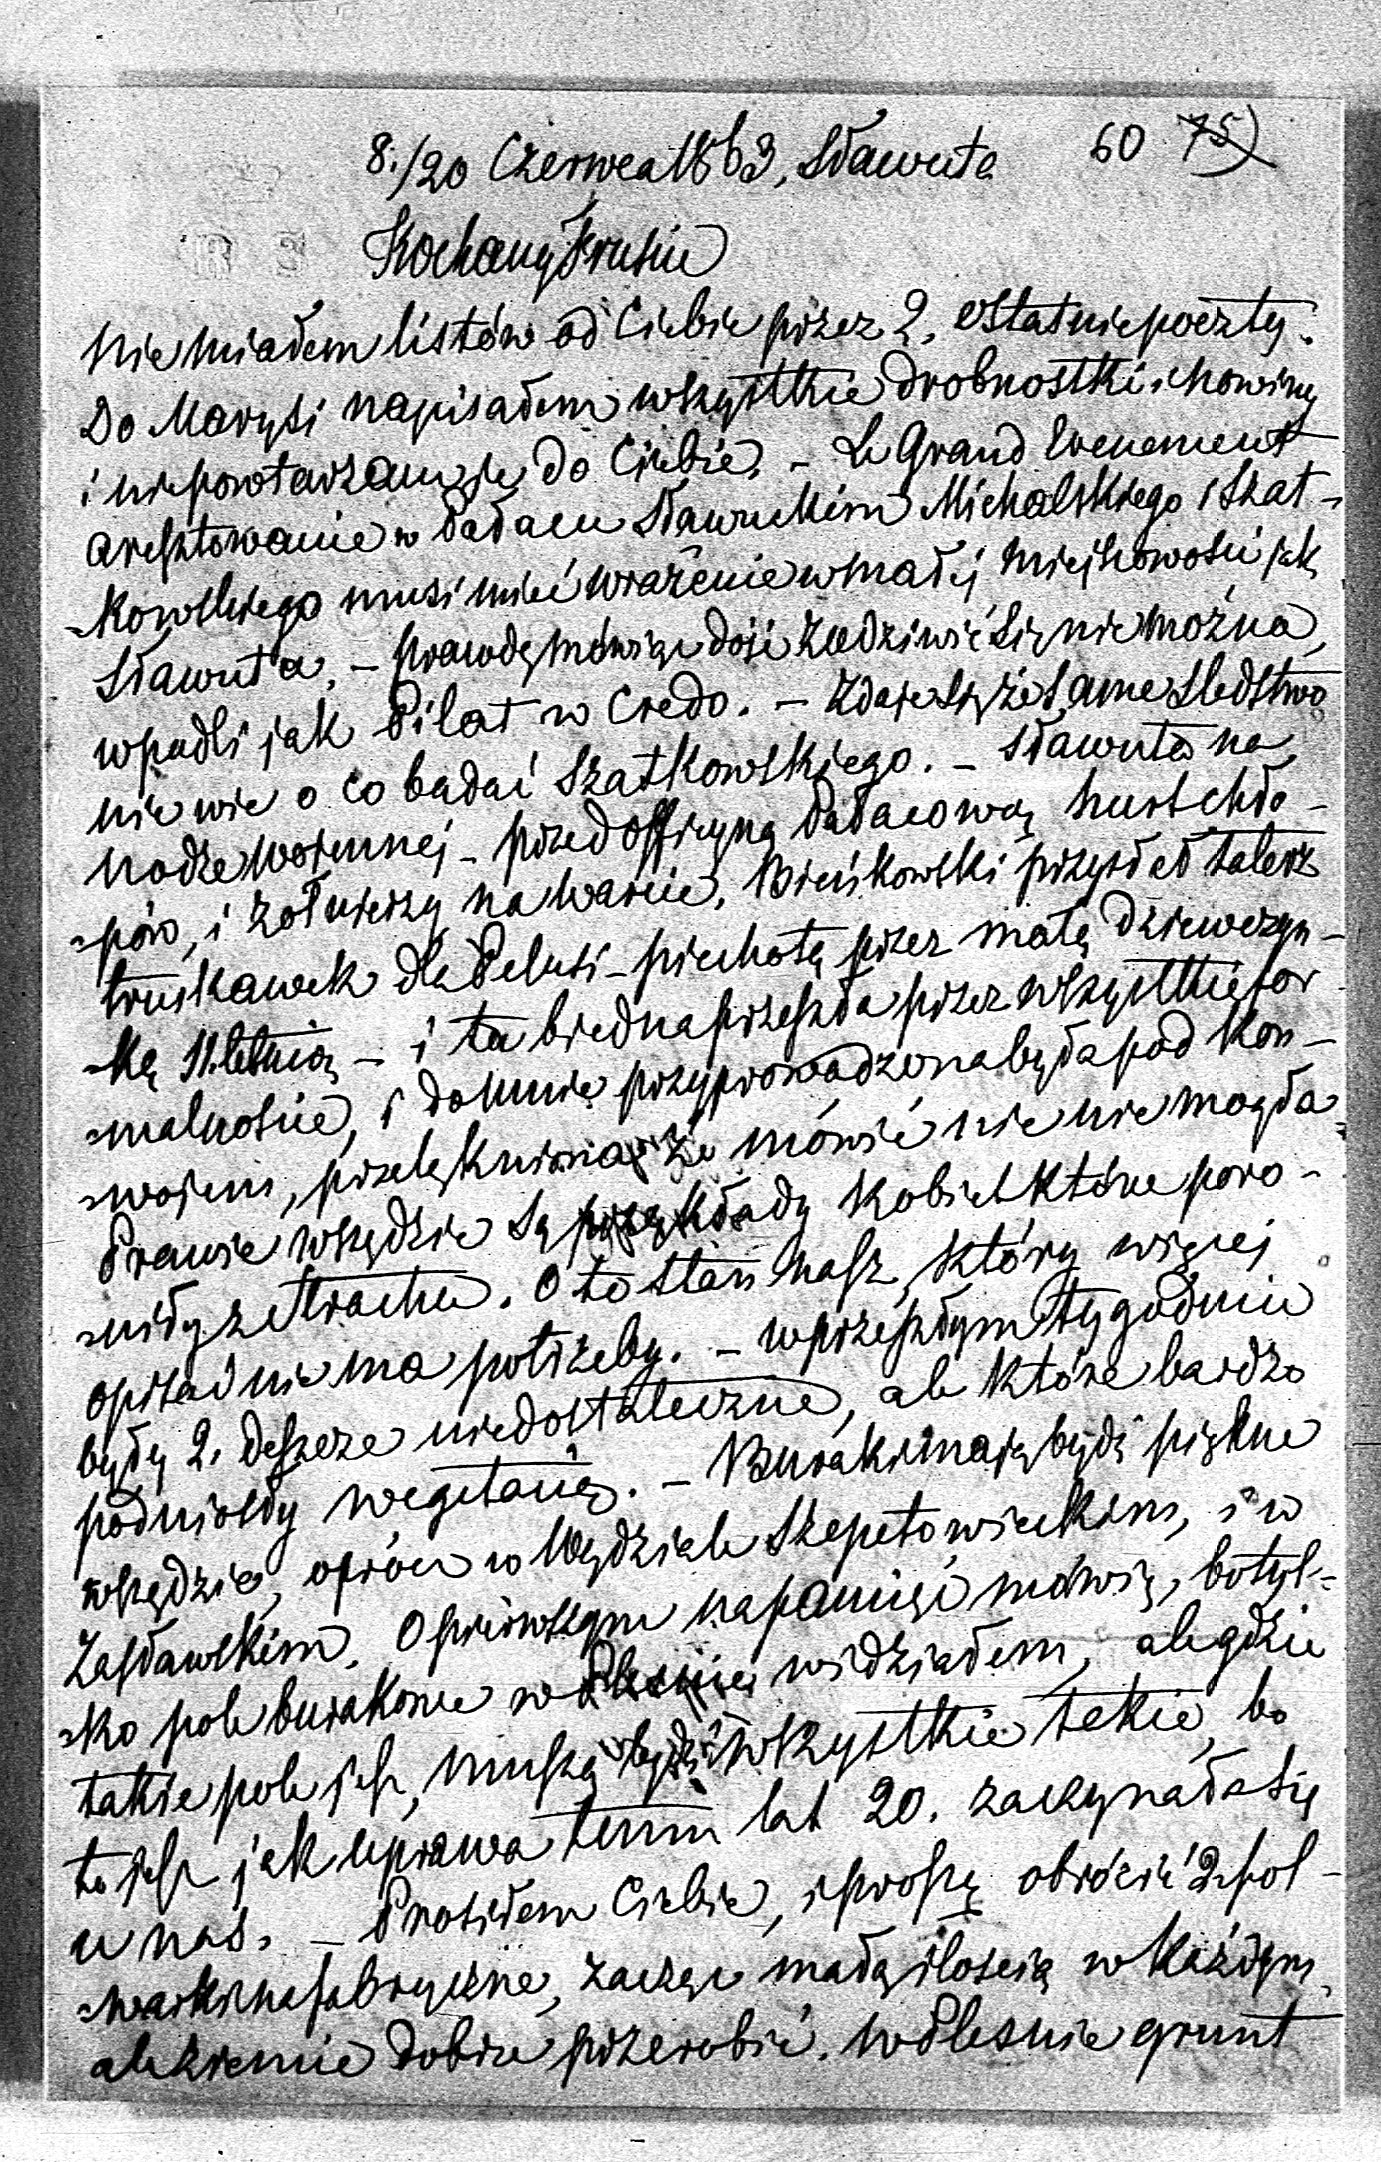 60 75)
8./20 Czerwca 1863, Sławuta
Kochany
Nie miałem listów od Ciebie przez 2, ostatnie poczty.
Do Marysi napisałem wszystkie drobnostki i nowiny
i nie powtarzam się do Ciebie. – Le Grand Evenement
aresztowanie w Pałacu Sławuckim Michalskiego i Szat-
-kowskiego musi mieć wrażenie w małej miejscowości jak
Sławuta, – prawdę mówiąc dość zadziwić się nie można,
wpadli jak Pilat w Credo. – Zdaje się że same sledstwo
nie wie o co badać Szatkowskiego. – Sławuta na
nodze wojennej – przed officyną Pałacową hurt chło-
-pów, i żołnierzy na warcie, Bieńkowski przysłał talerz
truskawek dla Pelusi – piechotą przez małą dziewczyn-
-kę 11. letnią – i ta biedna przeszła przez wszystkie for
-malnoście, i do mnie przyprowadzona była pod kon-
-wojem, przelękniona że mówić nic nie mogła.
Prawie wszędzie są przykłady kobiet które poro-
-niły z strachu. Oto stan nasz, który więcej
opisać nie ma potrzeby. – W przeszłym tygodniu
były 2. deszcze niedostateczne, ale które bardzo
podniosły wegetacią. – Buraki mają być piękne
wszędzie, oprócz w Wydziale Szepetowieckim, i w
Zasławskim. O pierwszym na pamięć mówię, bo tyl-
-ko pole burakowe w Plesnie widziałem, ale gdzie
takie pole jest, muszą być wszystkie takie, bo
to jest jak uprawa temu lat 20. zaczynała się
u nas. – Prosiłem Ciebie, i proszę obrócić 2 fol-
-warki na fabryczne, zacząć małą ilością w każdym,
ale ziemie dobrze przerobić. W Plesnie grunt